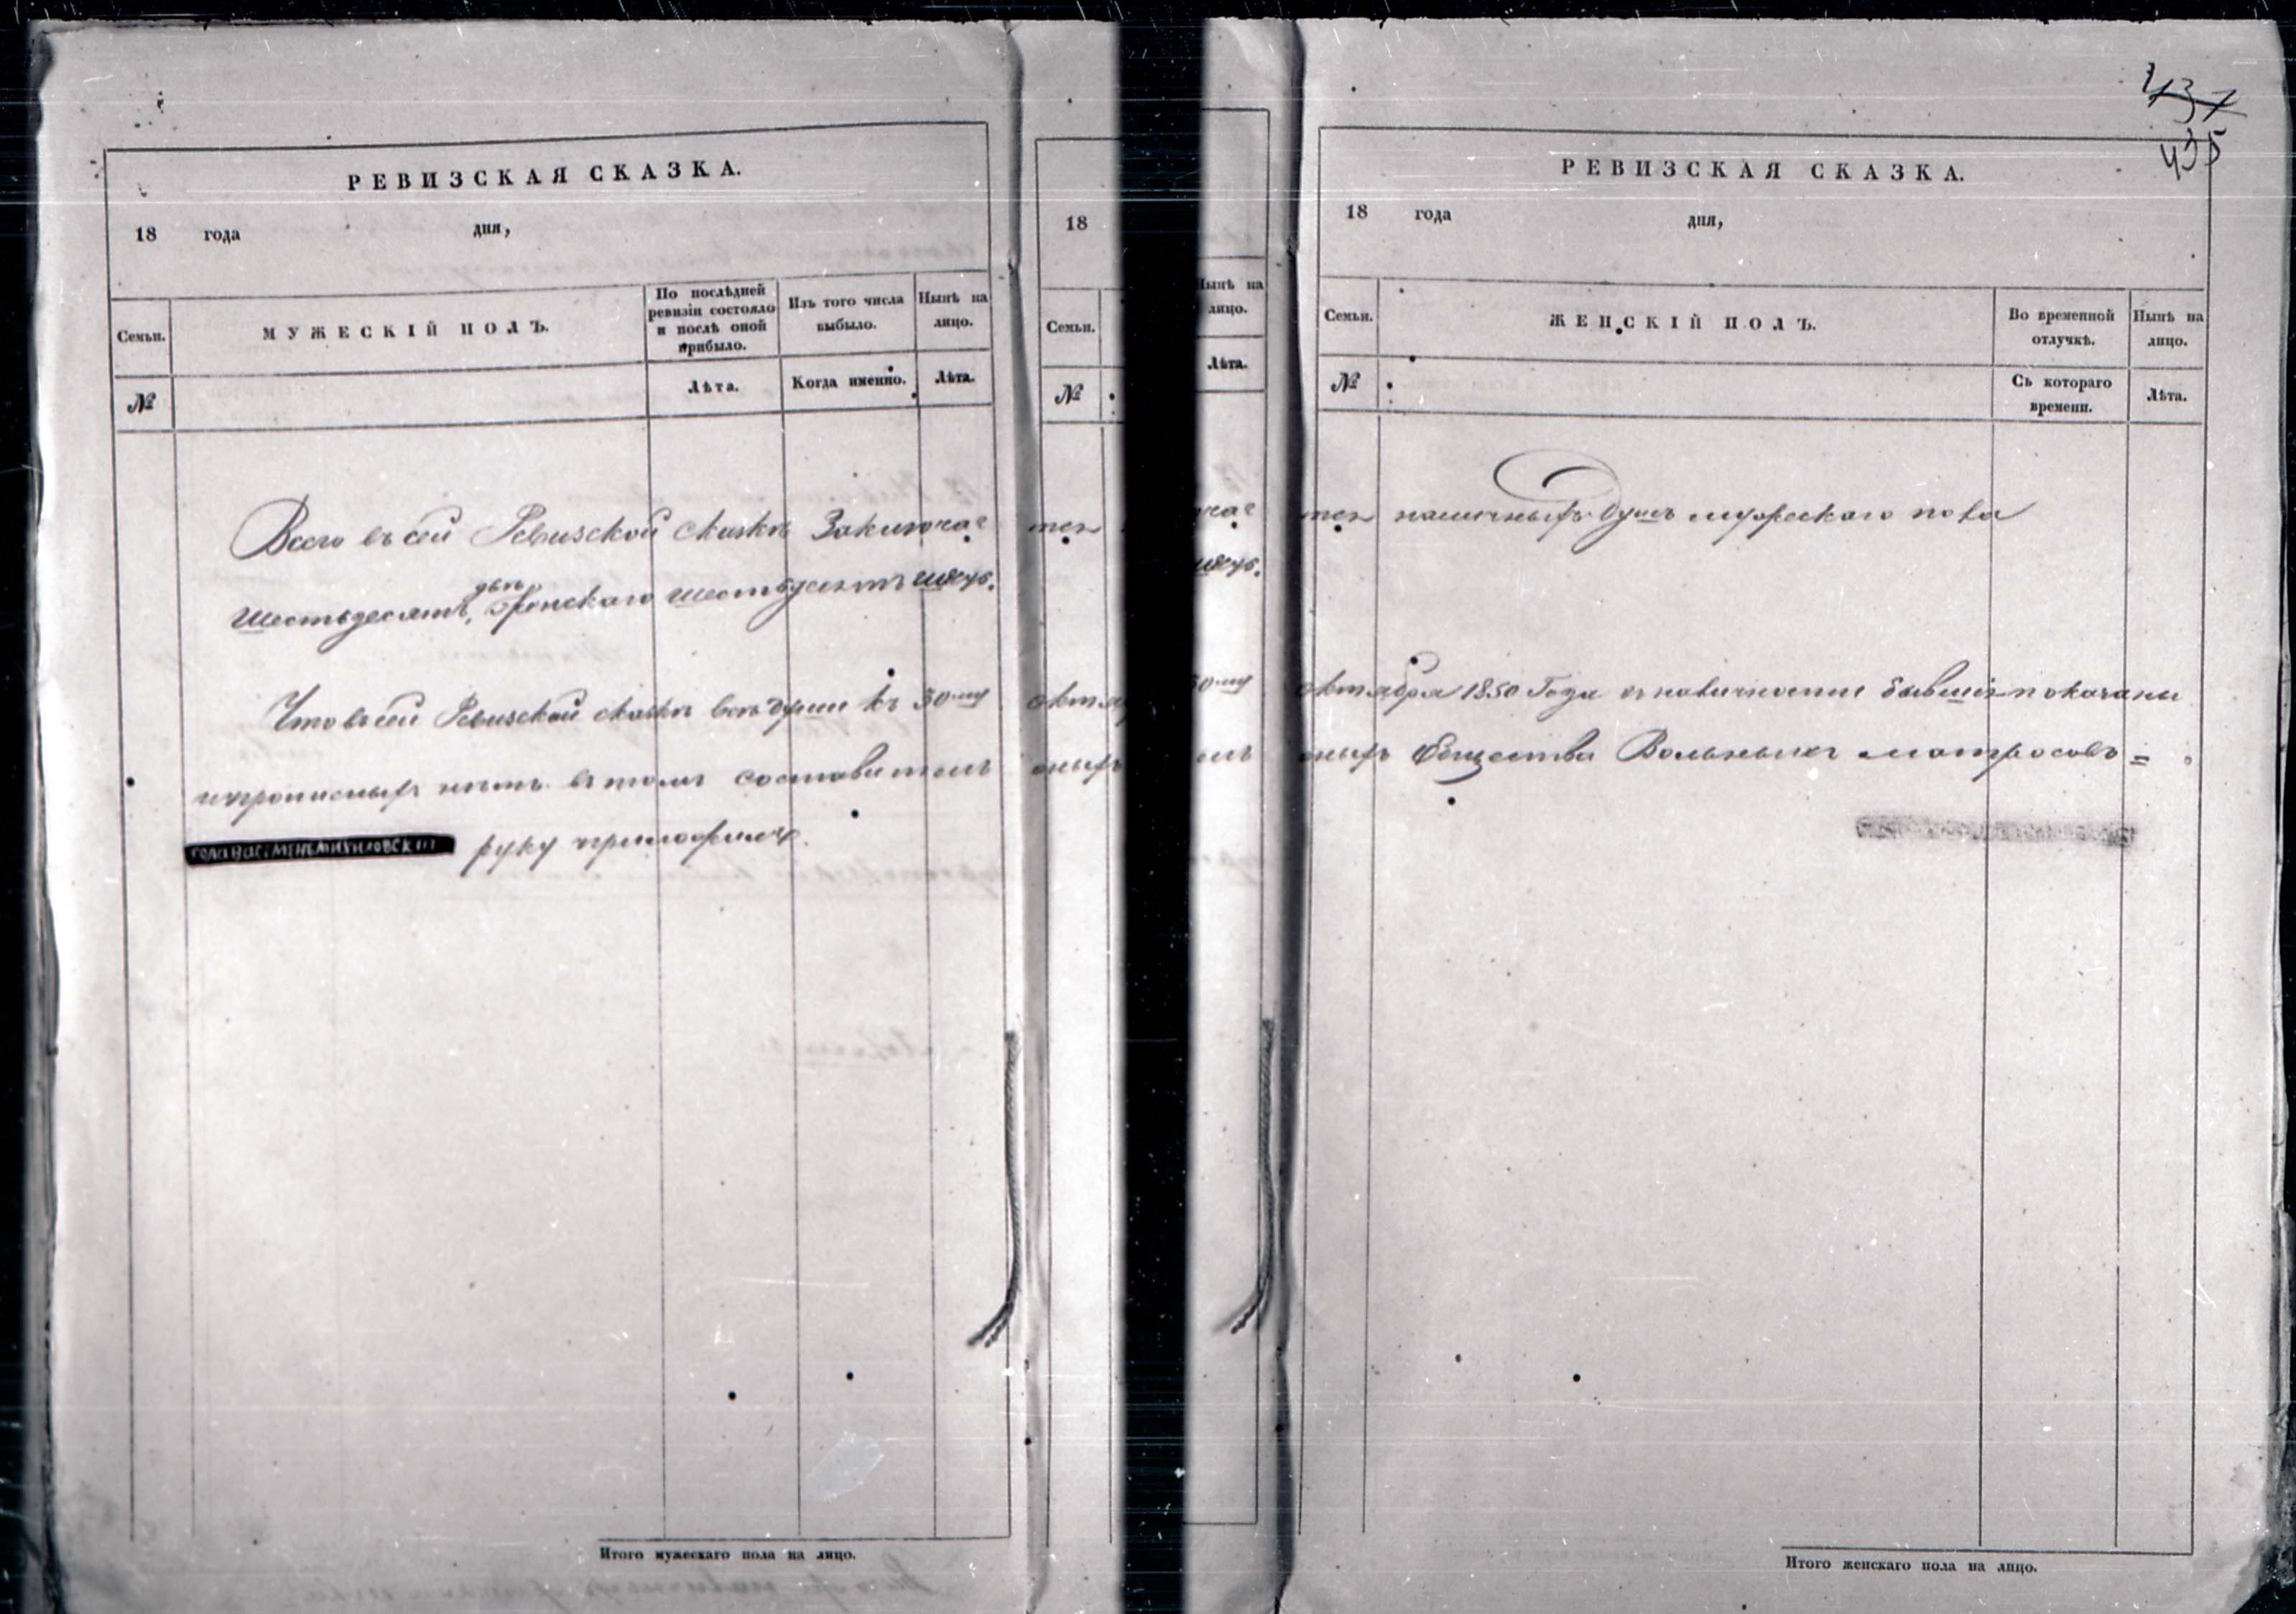 РЕВИЗСКАЯ СКАЗКА.
18 года дня,
Семьи.
МУЖЕСКІЙ ПОЛЪ.
По послѣдней ревизіи состояло и послѣ оной прибыло.
Изъ того числа выбыло.
Нынѣ на лицо.
№
Лѣта.
Когда именно.
Лѣта.
Всего въ сей Ревизской сказкѣ Заключае
Шестьдесятъ, двѣ женскаго шестьдесятъ
Что въ сей Ревизской сказкѣ всѣ души къ 30му
и прописныхъ нѣтъ въ томъ составитель
руку приложилъ.
Итого мужескаго пола на лицо.
18
Семьи.
№
тся
октя
оныхъ
Нынѣ на
лицо.
Лѣта.
30му
437
435
РЕВИЗСКАЯ СКАЗКА.
18 года дня,
Семьи.
ЖЕНСКІЙ ПОЛЪ.
Во временной отлучкѣ.
Нынѣ на лицо.
№
Съ котораго времени.
Лѣта.
тся наличныхъ Душъ мужескаго пола
октября 1850 Года въ наличности бывшія показаны
оныхъ Общества Вольныхъ матросовъ =
Итого женскаго пола на лицо.